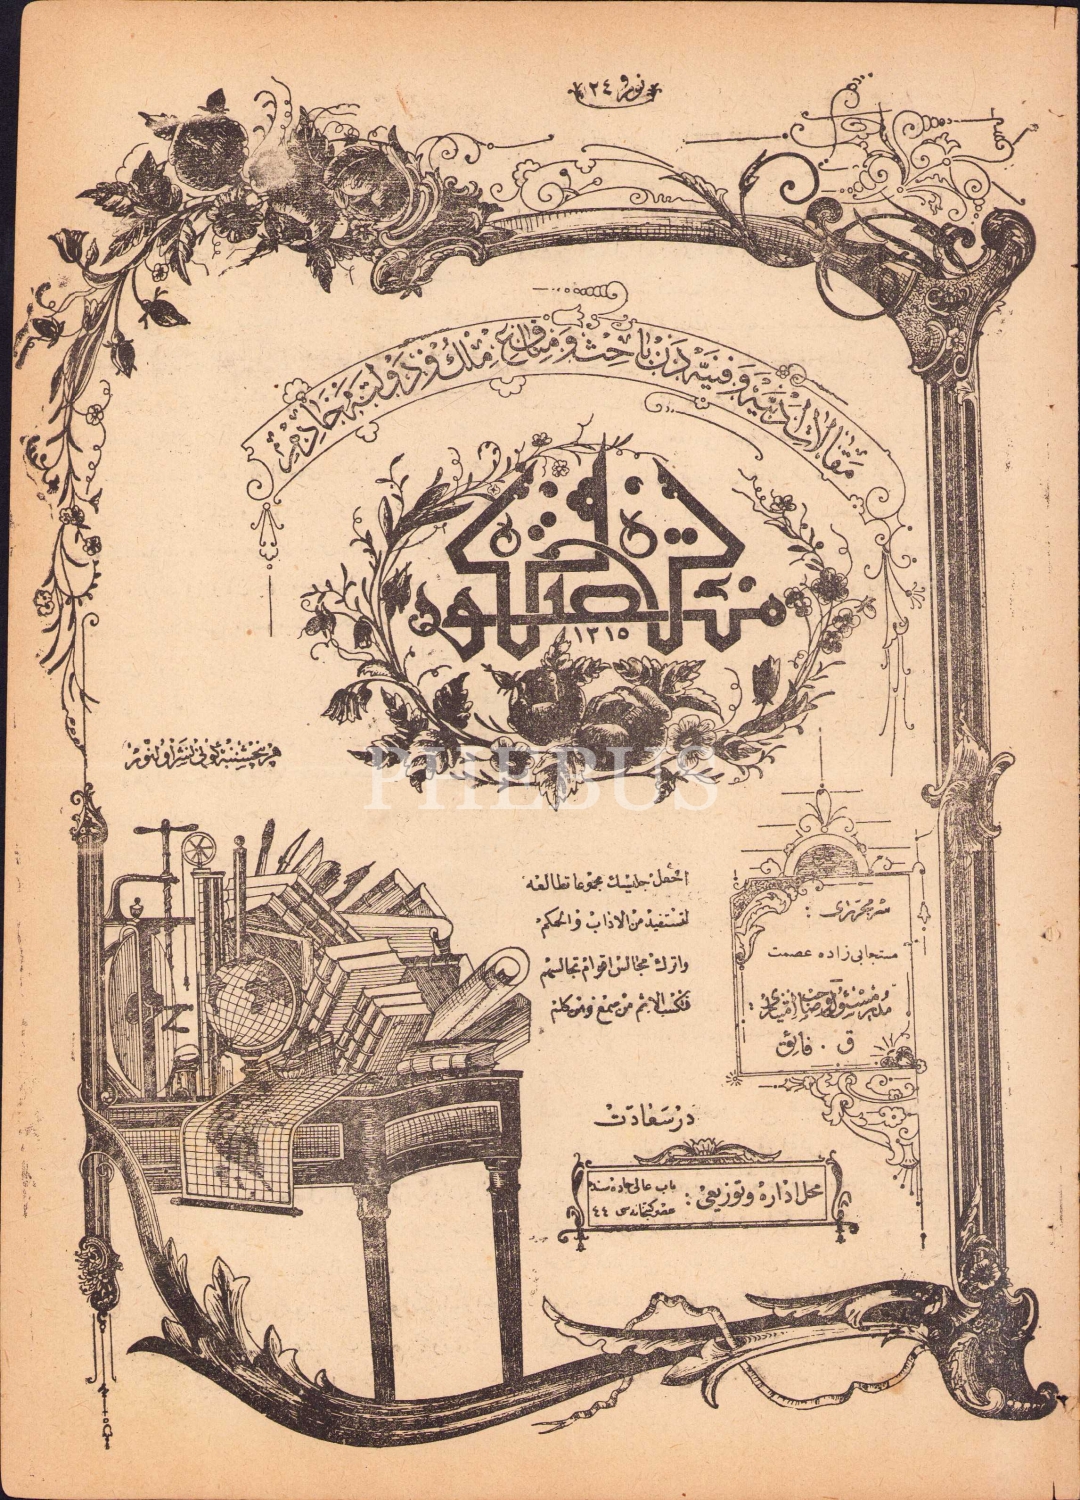 نومرو ٢٤
مقالات ادبیه و فنیه دن باحث و منافع ملك و دولته خادمدر
١٣١٥
هر پنجشنبه كونی نشر اولنور
PHEBUS
اجعل جلیسك مجموعا تطالعه
لتستفید من الاداب والحكم
واترك مجالس اقوام تجالسهم
فتكسب الاثم من سمع ومن كلم
سر محرری :
مستجابی زاده عصمت
مدیر مسئول و صاحب امتیازی :
ق . فائق
درسعادت
محل اداره و توزیعی : باب عالی جاده سنده
عصر كتبخانه سی ٤٤